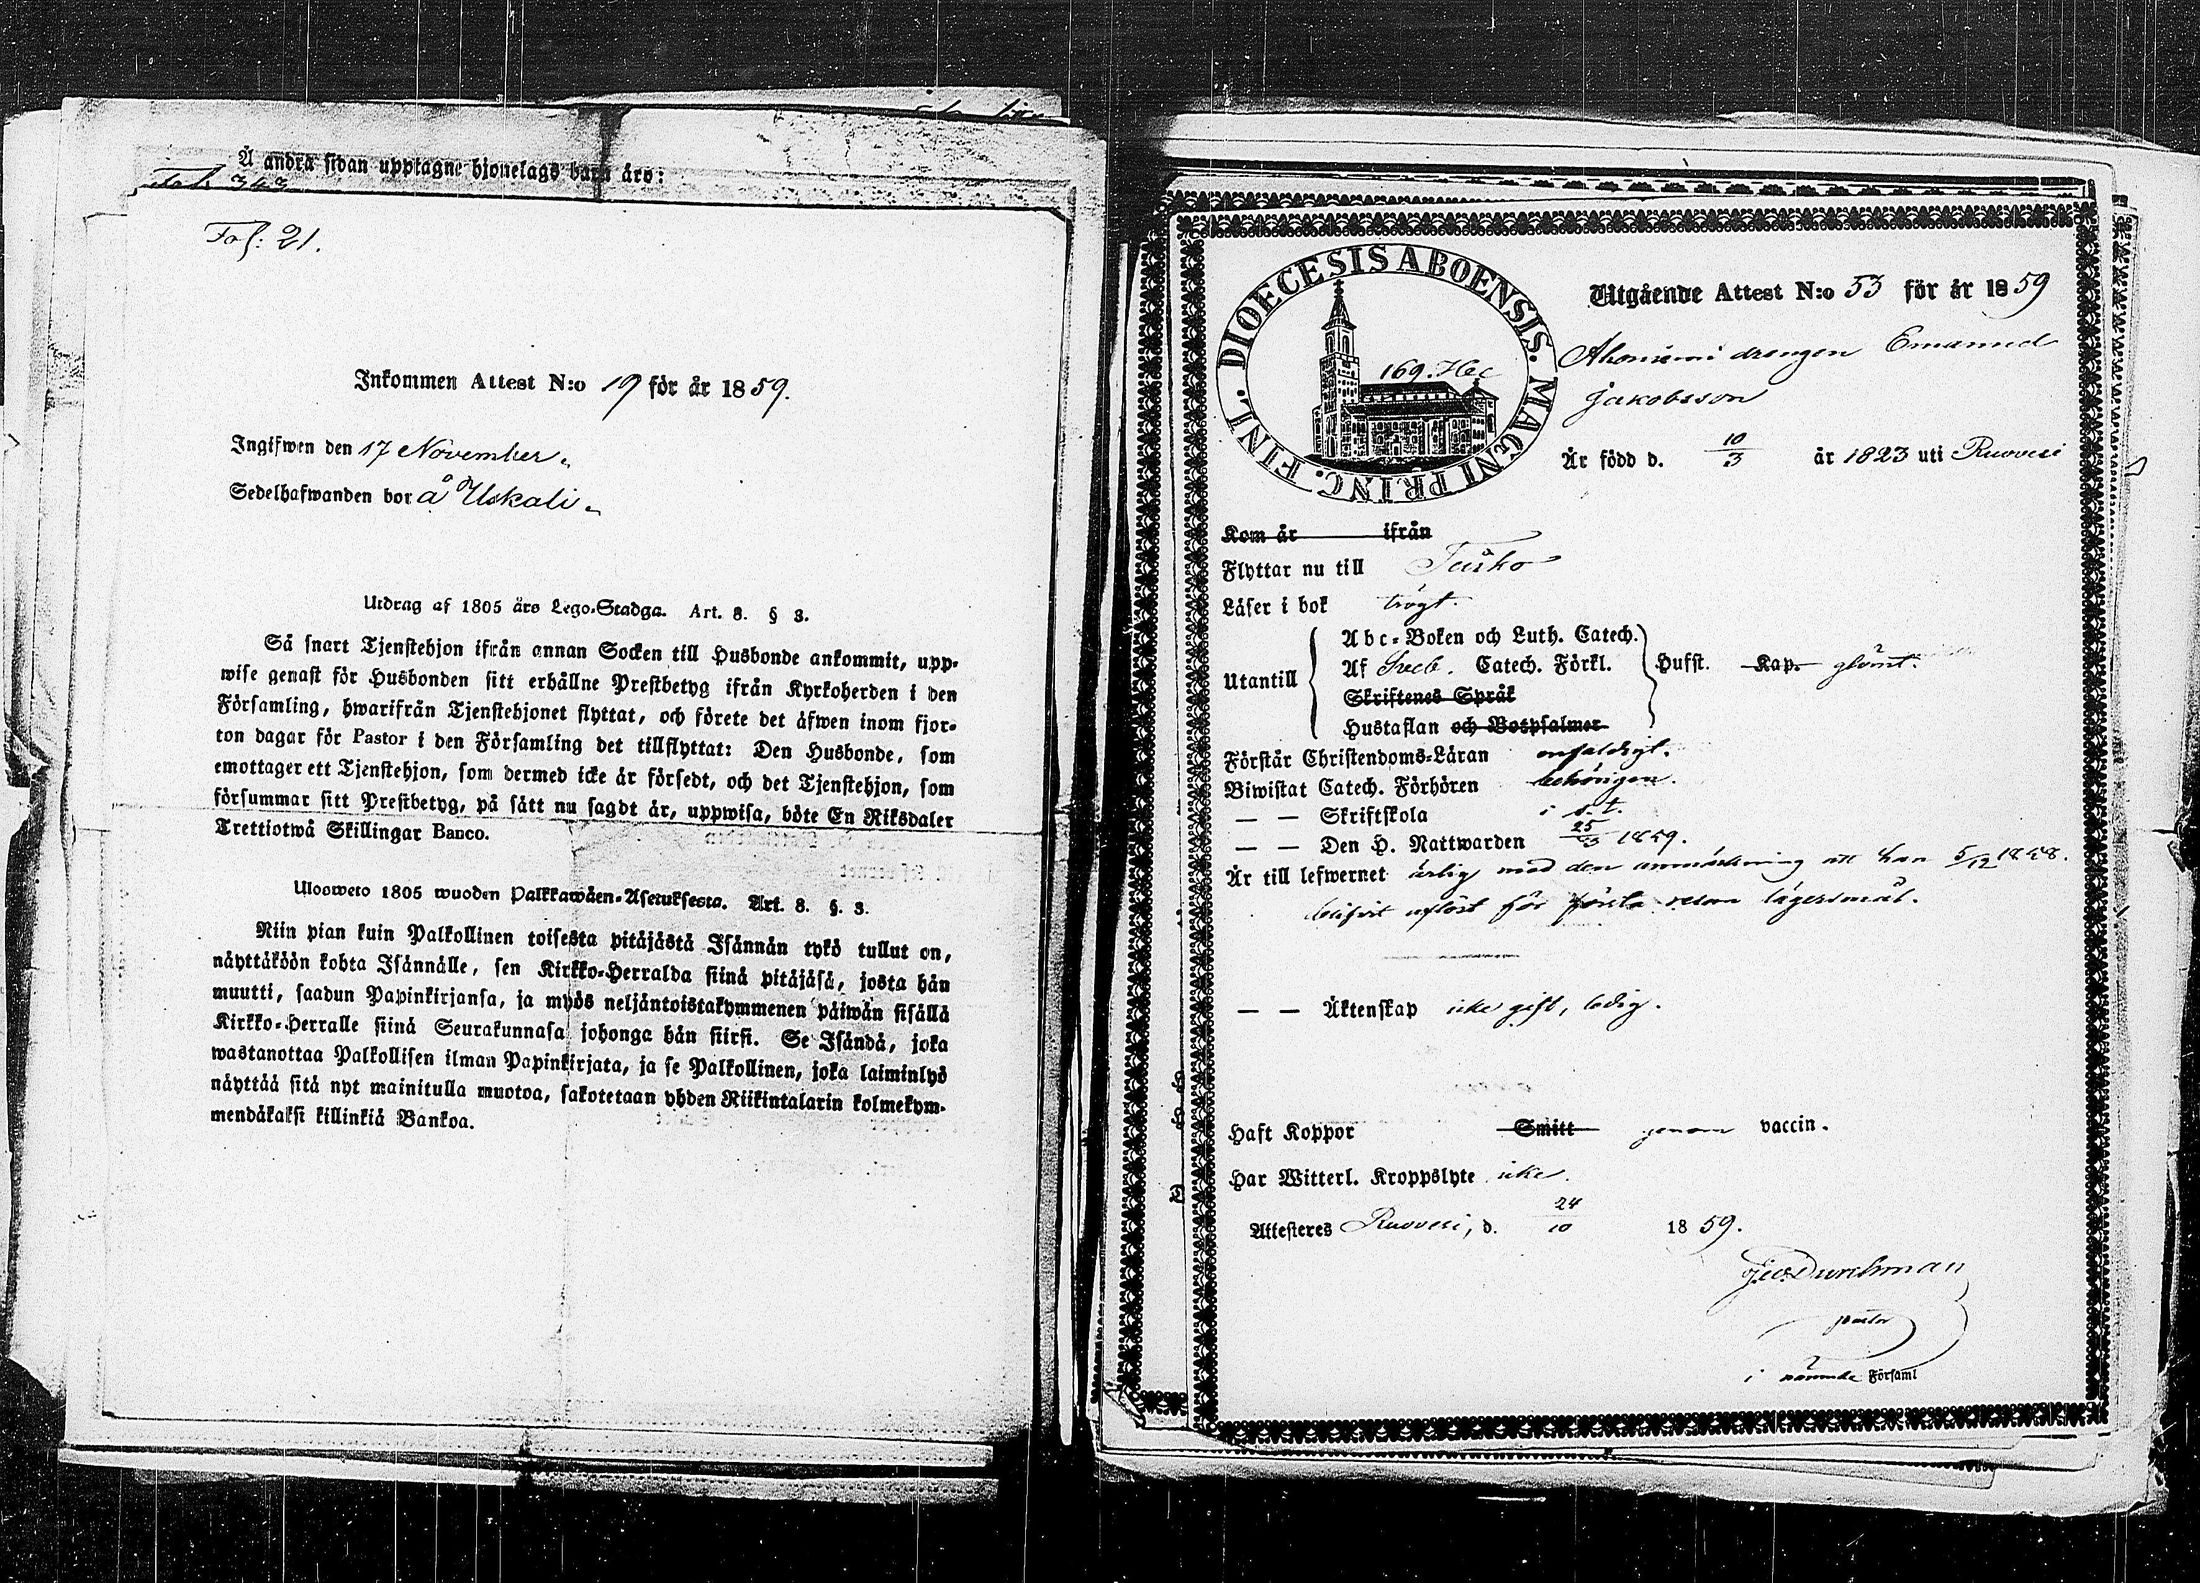 Å andra sidan upptagne hjonelags barn äro:
Fol: 21.
Inkommen Attest N:o 19 för år 1859.
Ingifwen den 17 November.
Sedelhafwanden bor å Uskali.
Utdrag af 1805 års Lego-Stadga. Art. 8. § 3.
Så snart Tjenstehjon ifrån annan Socken till Husbonde ankommit, upp-
wise genast för Husbonden sitt erhållne Prestbetyg ifrån Kyrkoherden i den
Församling, hwarifrån Tjenstehjonet flyttat, och förete det äfwen inom fjor-
ton dagar för Pastor i den Församling det tillflyttat: Den Husbonde, som
emottager ett Tjenstehjon, som dermed icke är försedt, och det Tjenstehjon, som
försummar sitt Prestbetyg, på sätt nu sagdt är, uppwisa, böte En Riksdaler
Trettiotwå Skillingar Banco.
Ulosweto 1805 wuoden Palkkawäen-Asetuksesta. Art. 8. §. 3.
Niin pian kuin Palkollinen toisesta pitäjästä Isännän tykö tullut on,
näyttäköön kohta Isännälle, sen Kirkko-Herralda siinä pitäjäsä, josta hän
muutti, saadun Papinkirjansa, ja myös neljäntoistakymmenen päiwän sisällä
Kirkko-Herralle siinä Seurakunnasa johonga hän siirsi. Se Isändä, joka
wastanottaa Palkollisen ilman Papinkirjata, ja se Palkollinen, joka laiminlyö
näyttää sitä nyt mainitulla muotoa, sakotetaan yhden Riikintalarin kolmekym-
mendäkaksi killinkiä Bankoa.
DIOECESIS ABOENSIS. MAGNI PRINC. FINL.
169. Hec
Utgående Attest N:o 53 för år 1859
drengen Emanuel
Jakobsson
Är född d. 10/3 år 1823 uti Ruovesi
Kom år ifrån
Flyttar nu till Teisko
Läser i bok trögt.
Utantill
Abc-Boken och Luth. Catech.
Af Sveb. Catech. Förkl.
Skriftenes Språk
Hustaflan och Botpsalmer
Hufst. Kap. glömt.
Förstår Christendoms-Läran enfaldigt.
Biwistat Catech. Förhören behörigen.
— — Skriftskola i s. t.
— — Den H. Nattwarden 25/3 1859.
Är till lefwernet ärlig med den anmärkning att han 5/12 1858.
blifvit aflöst för första resan lägersmål.
— — Äktenskap icke gift, ledig.
Haft Koppor Smitt genom vaccin.
Har Witterl. Kroppslyte icke.
Attesteres Ruovesi, d. 24/10 1859.
Durchman
pastor
i nämnde Församl